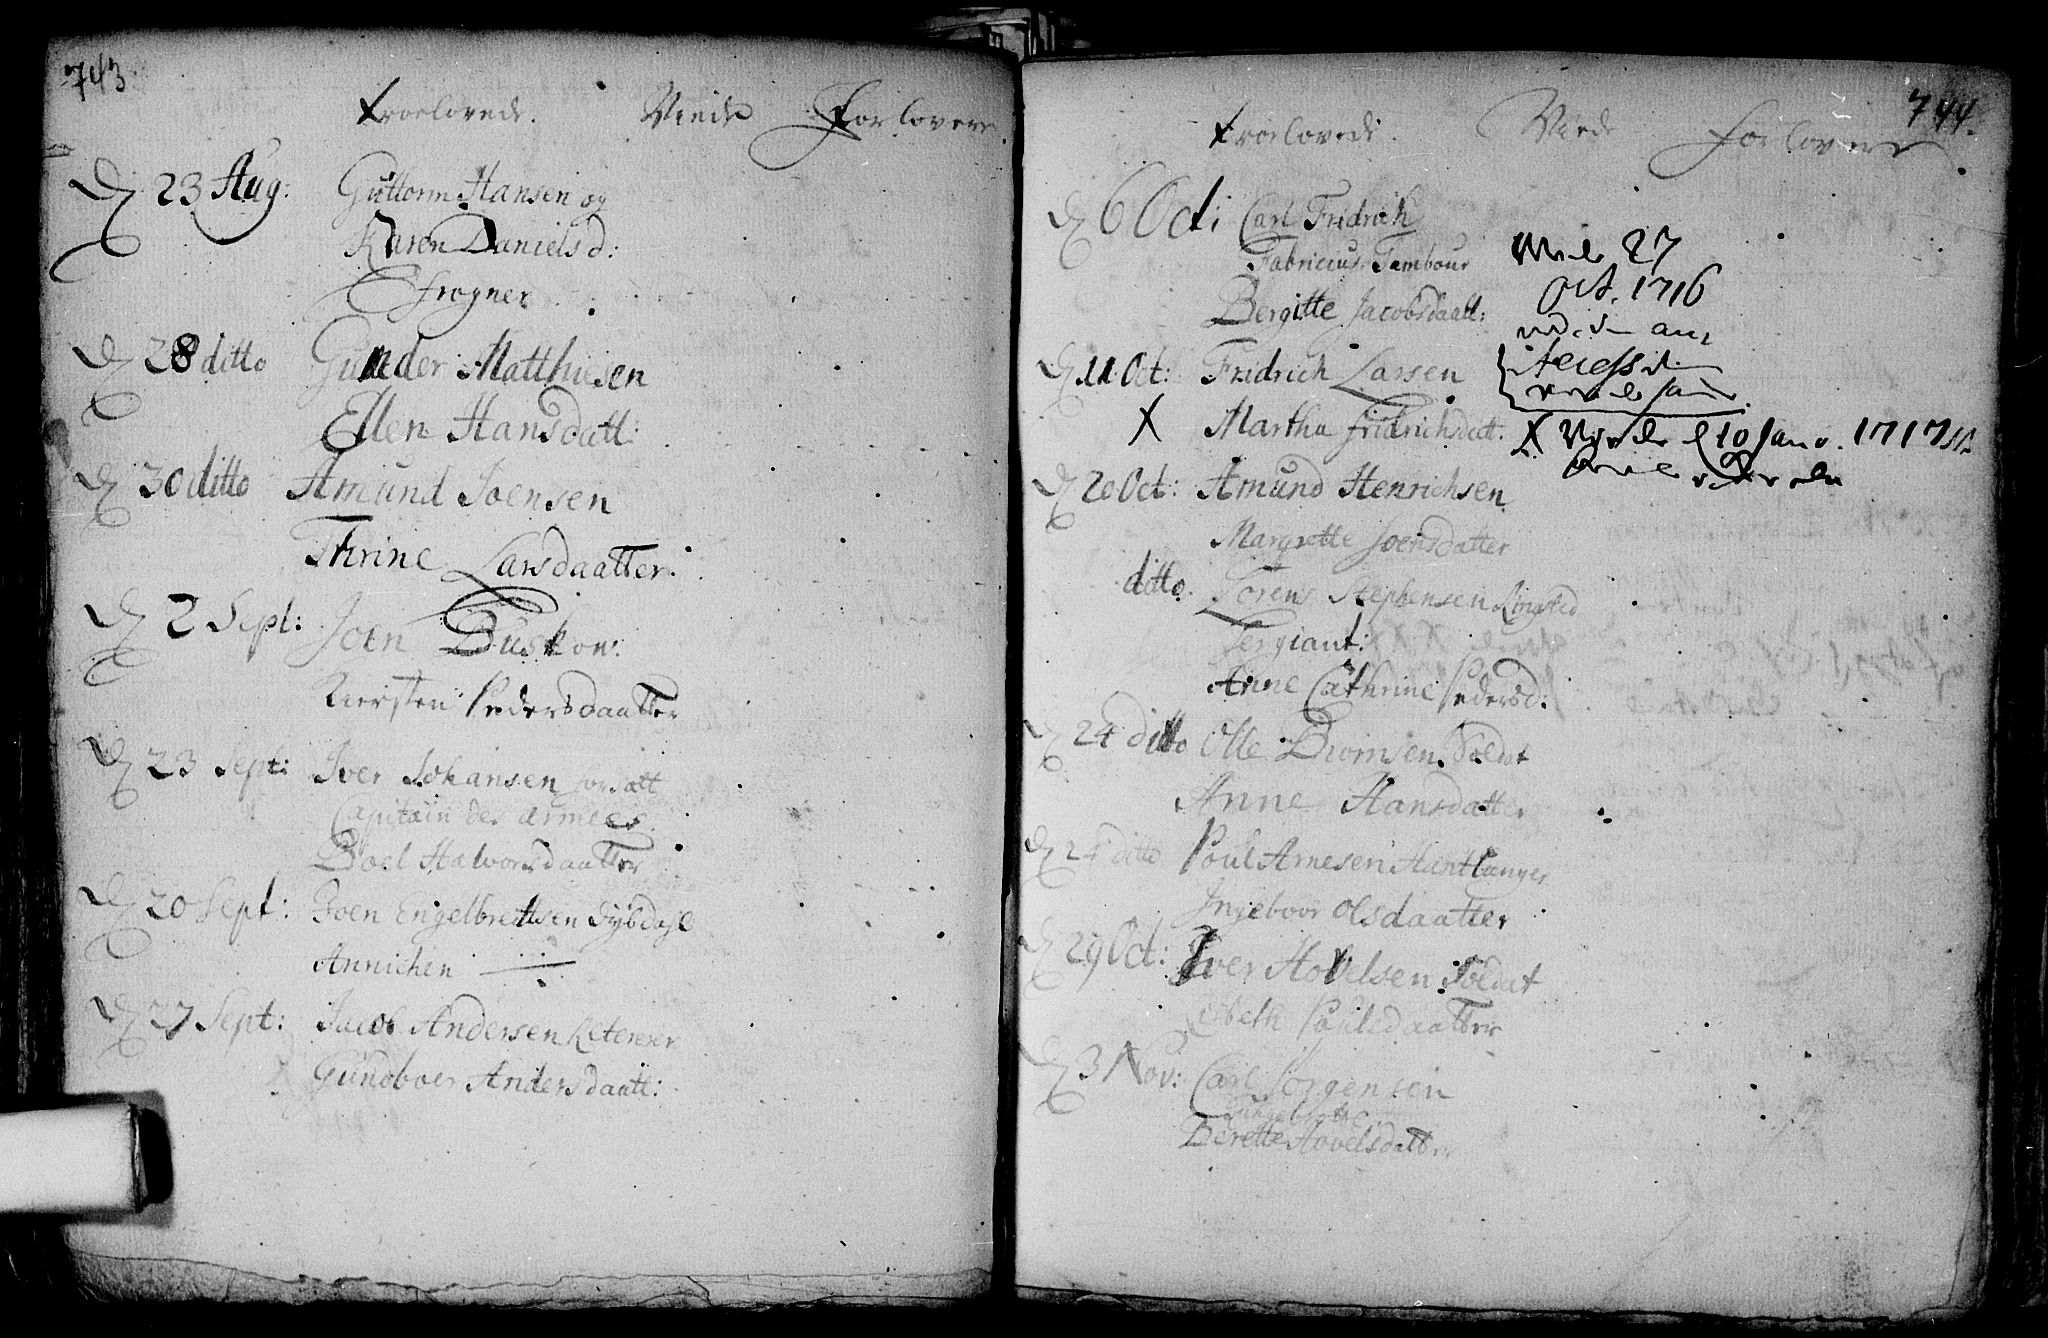 743
troelovede. Viede Forlovere
D 23 Aug: Guttorm Hansen og
Karen Danielsd:
Frogner
D 28 ditto Gunder Matthiesen
Ellen Hansdatt:
D 30 ditto Amund Joensen
Thrine Larsdaatter.
D 2 Sept: Joen Buskow:
Kiersten Pedersdaatter
D 23 Sept: Iver Johansen
Capitain des armees
Boel Halvorsdaatter
D 20 Sept: Joen Engelbretsen
Annichen
D 27 Sept: Jacob Andersen
Gundboer Andersdaatt:
744.
troelovede. Viede forlovere
D 6 Oct: Carl Fridrich
Fabricius Tambour
Bergitte Jacobsdaatt:
Viede 27
Oct. 1716
D 11 Oct: Fridrich Larsen
X Martha fridrichsdatt.
X Viede d 10 Janv. 1717
D 20 Oct: Amund Henrichsen
Margrette Joensdatter
ditto. Lorens Stephensen Ringsted
Sergiant:
Anne Cathrine Pedersd:
D 24 ditto Olle Biørnsen Soldat
Anne Hansdatter
D 24 ditto Poul Arnesen Hantlanger
Ingeboor Olsdaatter
D 29 Oct: Iver Hovelsen Soldat
Lisbeth Poulsdaatter
D 3 Nov: Carl Jørgensen
Berette Hovelsdatter